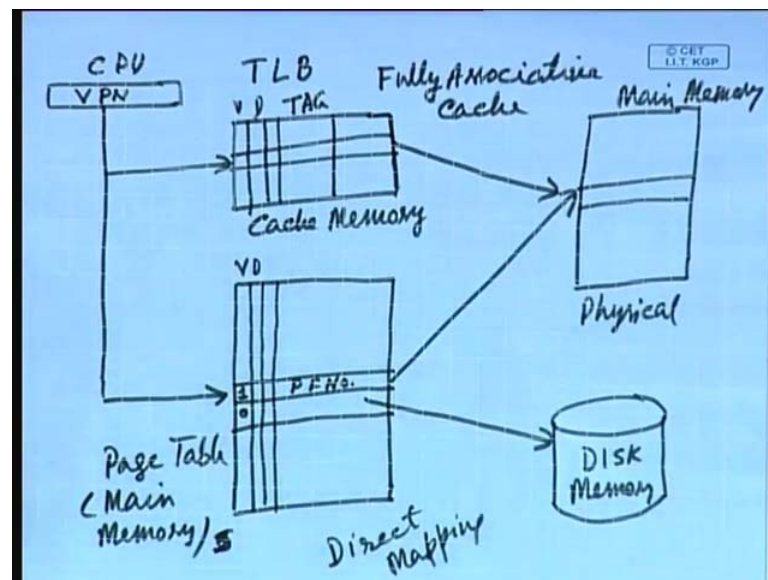 © CET
I.I.T. KGP
CPU
VPN
TLB
V D TAG
Cache Memory
Fully Associative
Cache
Main Memory
Physical
V D
1 P F No.
0
Page Table
(Main
Memory)
Direct
Mapping
DISK
Memory